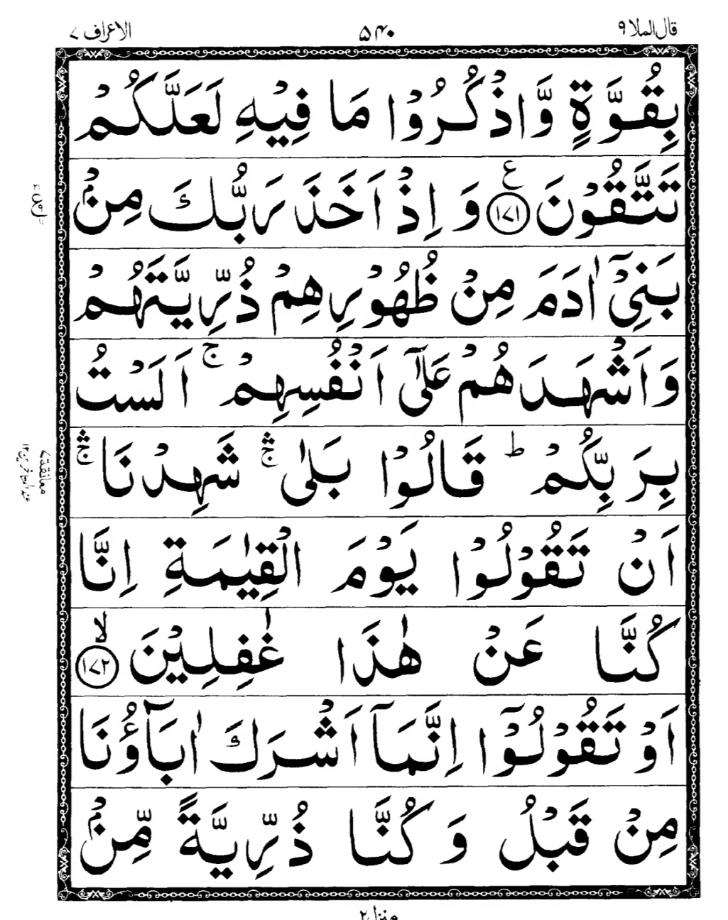 قال الملا ٩ ۵۴۰ الاعراف ٧
بِقُوَّةٍ وَّاذْكُرُوْا مَا فِيْهِ لَعَلَّكُمْ
تَتَّقُوْنَ ع ﴿١٧١﴾ وَ اِذْ اَخَذَ رَبُّكَ مِنْۢ
بَنِيْٓ اٰدَمَ مِنْ ظُهُوْرِهِمْ ذُرِّيَّتَهُمْ
وَاَشْهَدَهُمْ عَلٰٓى اَنْفُسِهِمْ ۚ اَلَسْتُ
بِرَبِّكُمْ ؕ قَالُوْا بَلٰى ۛۚ شَهِدْنَا ۛۚ
اَنْ تَقُوْلُوْا يَوْمَ الْقِيٰمَةِ اِنَّا
كُنَّا عَنْ هٰذَا غٰفِلِيْنَ ۙ ﴿١٧٢﴾
اَوْ تَقُوْلُوْٓا اِنَّمَآ اَشْرَكَ اٰبَآؤُنَا
مِنْ قَبْلُ وَ كُنَّا ذُرِّيَّةً مِّنْۢ
منزل ٢